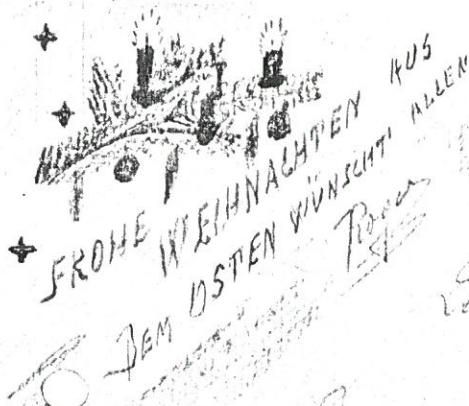 FROHE WEIHNACHTEN AUS
DEM OSTEN WÜNSCHT ALLEN
Roger